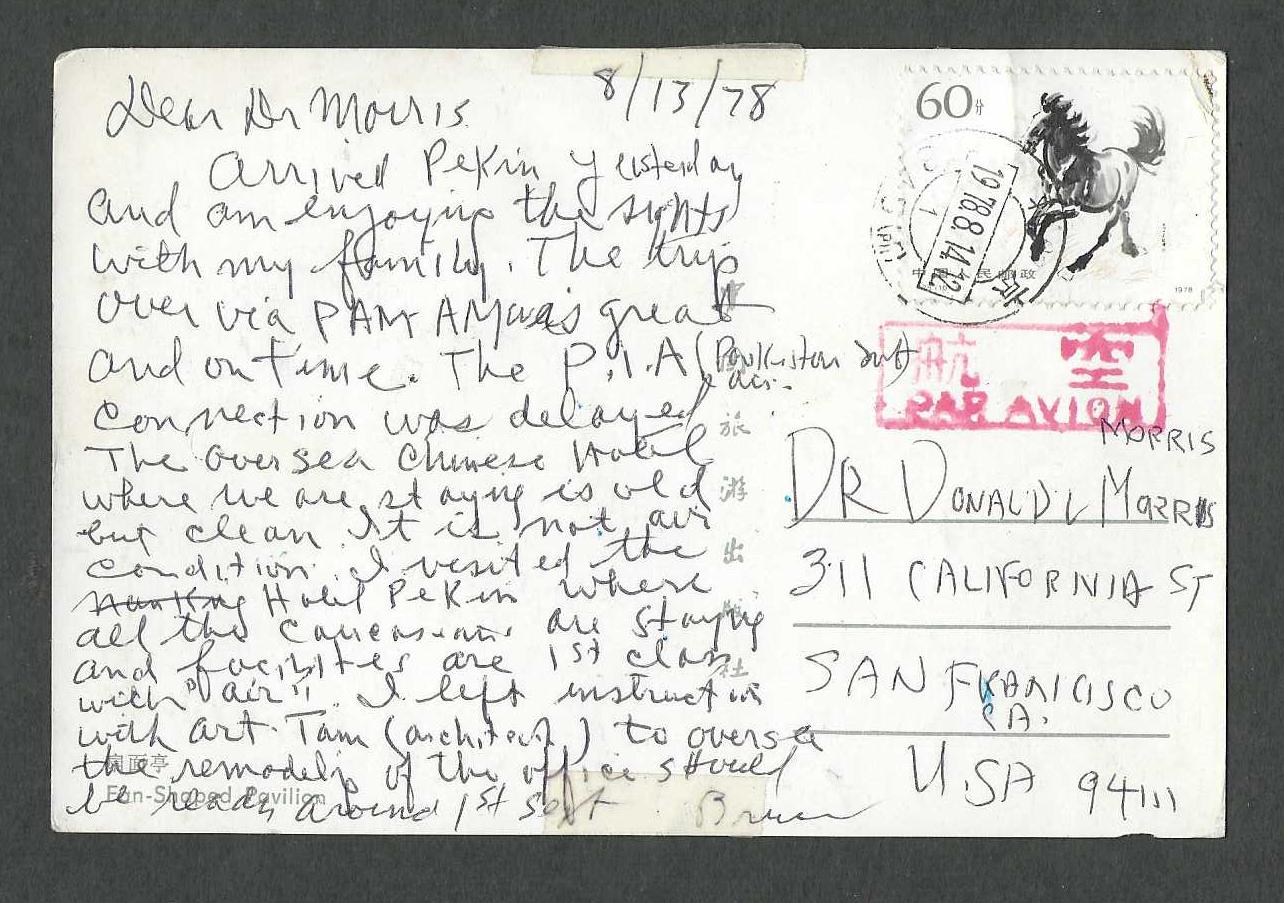 8/13/78
Dear Dr Morris
Arrived Pekin yesterday
and am enjoying the sights
with my family. The trip
over via PAN AM was great
and on time. The P.I.A (Pakistan
air.
connection was delayed
The Oversea Chinese Hotel
where we are staying is old
but clean. It is not air
condition. I visited the
Hotel Pekin where
all the Caucasians are staying
and facilities are 1st class
with "air". I left instruction
with Art Tam (architect) to oversee
the remodeling of the office should
be ready around 1st Sept Bruce
扇面亭
Fan-Shaped Pavilion
旅游出版社
60分
1978.8.14.12
中国人民邮政
1978
航空
PAR AVION
MORRIS
DR DONALD L MORRIS
311 CALIFORNIA ST
SAN FRANCISCO
CA.
USA 94111